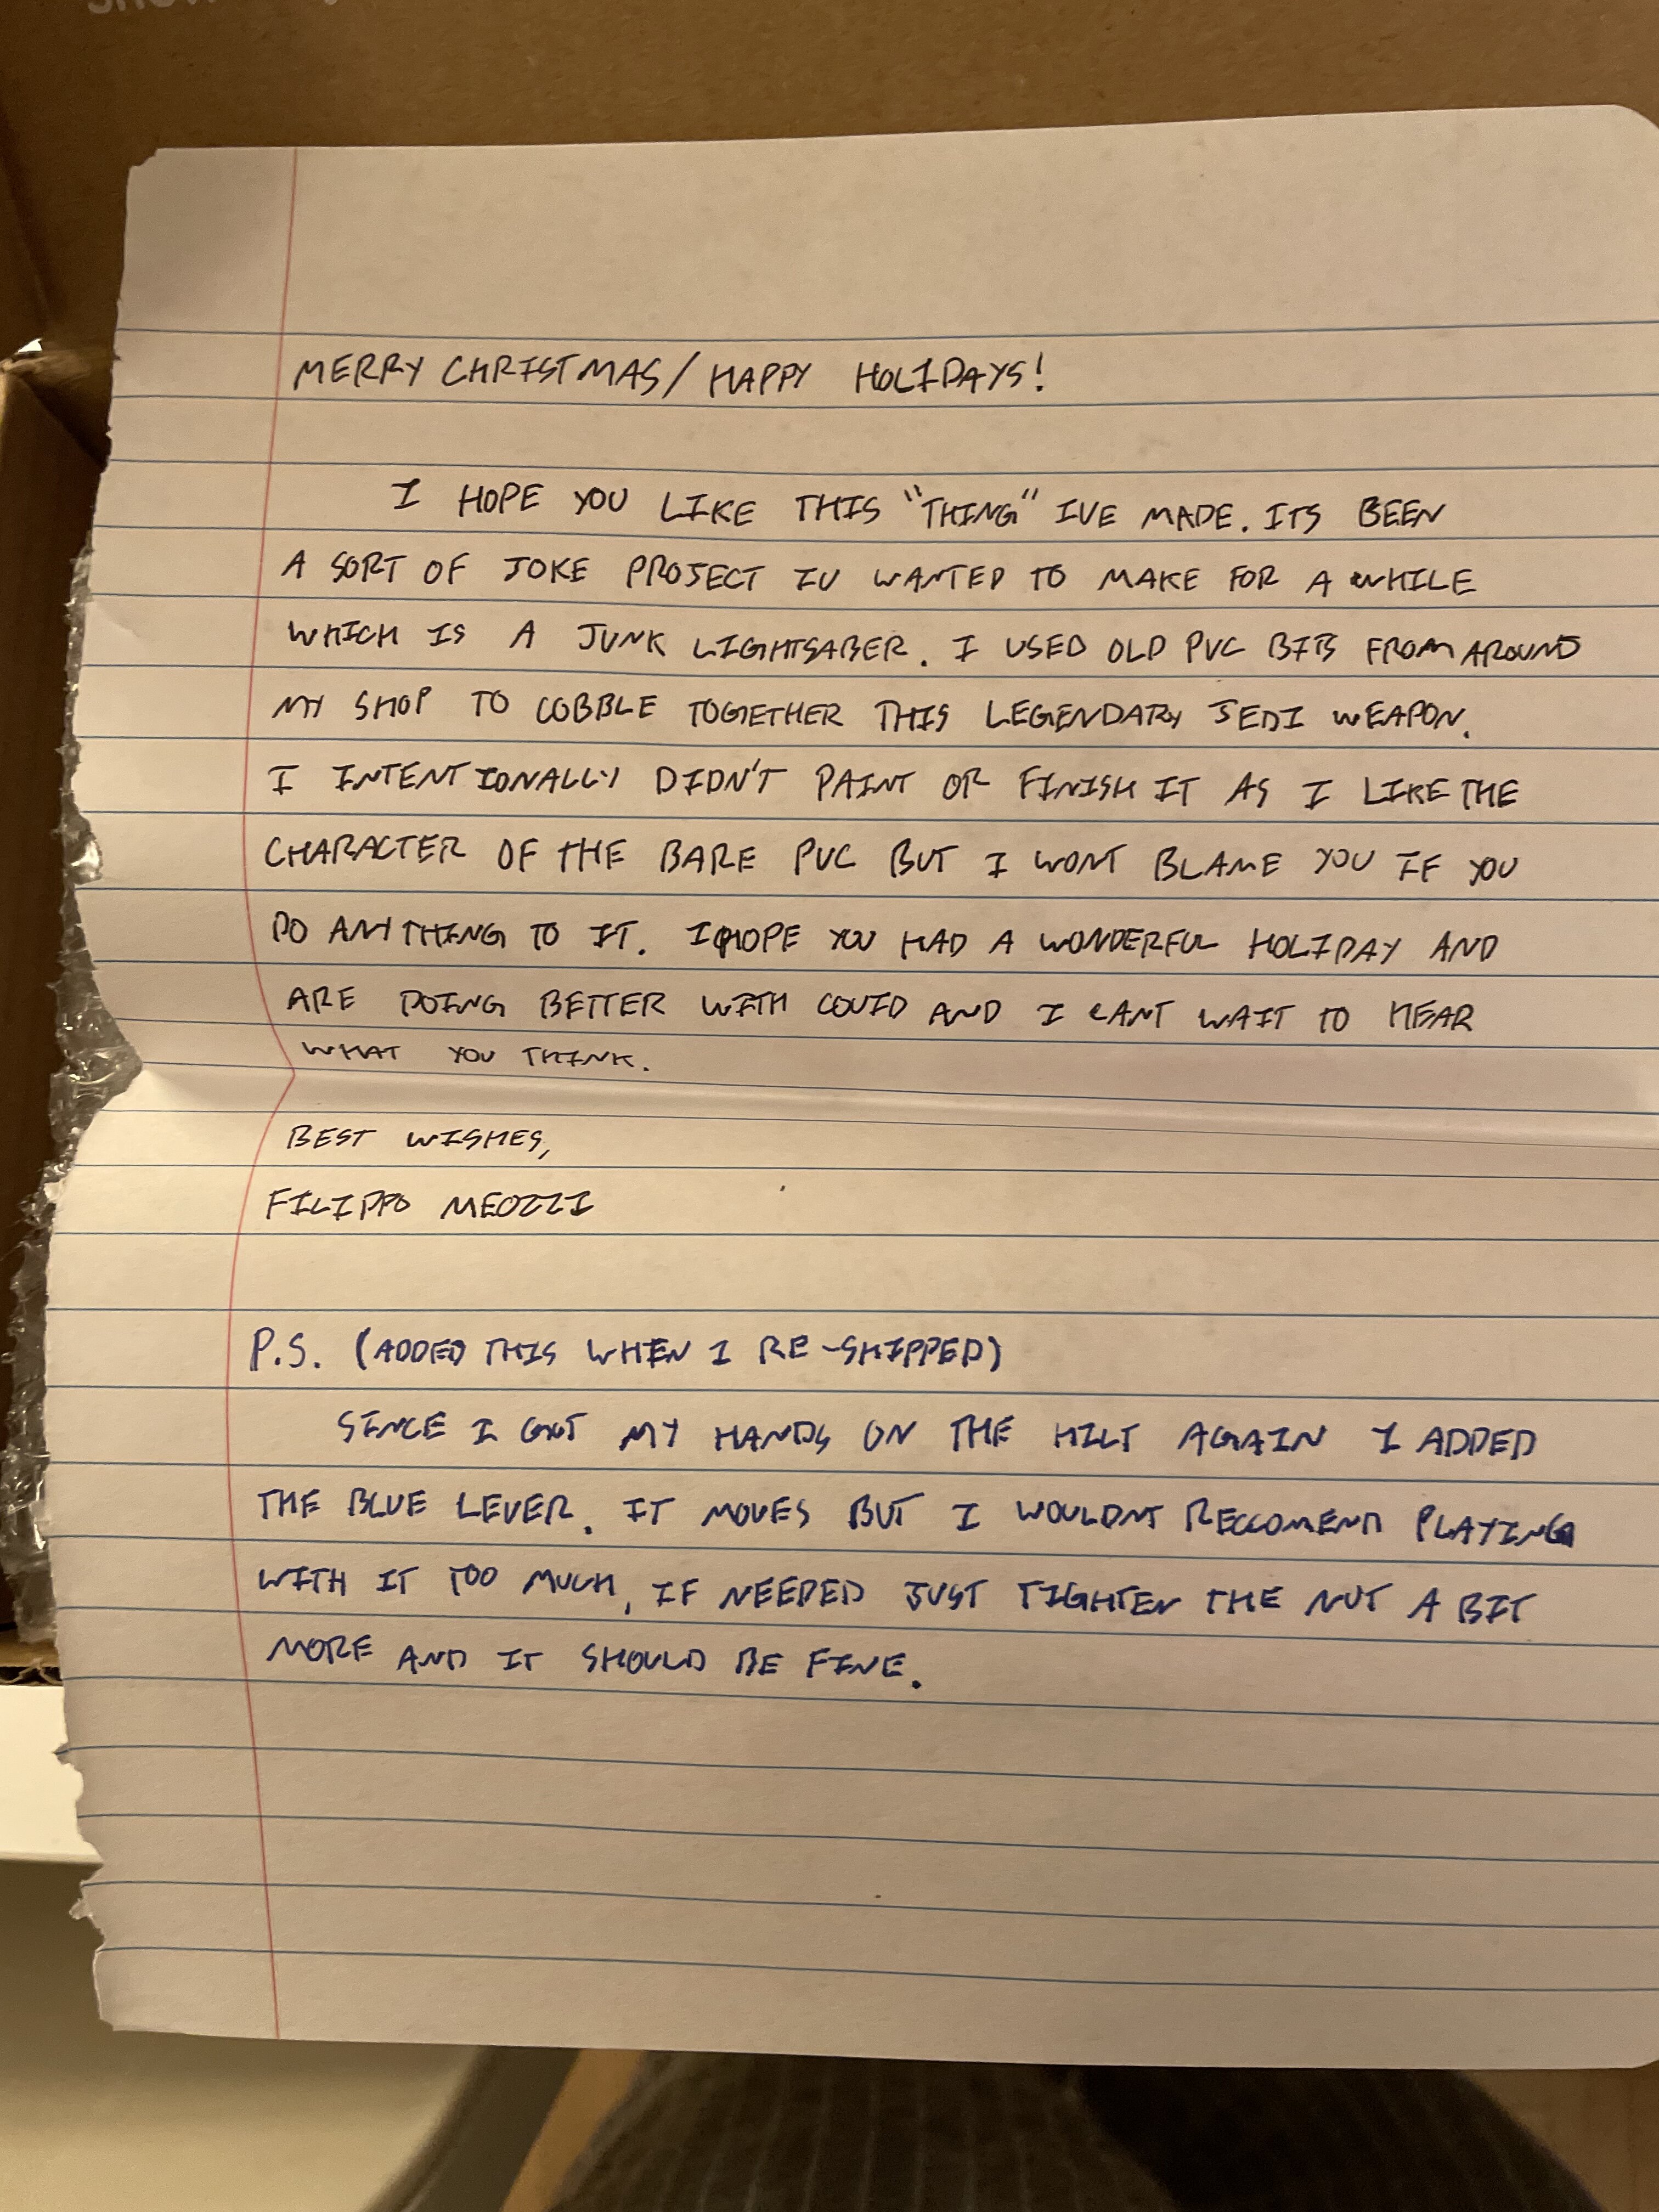 MERRY CHRISTMAS/HAPPY HOLIDAYS!
I HOPE YOU LIKE THIS "THING" IVE MADE. ITS BEEN
A SORT OF JOKE PROJECT IV WANTED TO MAKE FOR A WHILE
WHICH IS A JUNK LIGHTSABER. I USED OLD PVC BITS FROM AROUND
MY SHOP TO COBBLE TOGETHER THIS LEGENDARY JEDI WEAPON.
I INTENTIONALLY DIDN'T PAINT OR FINISH IT AS I LIKE THE
CHARACTER OF THE BARE PVC BUT I WONT BLAME YOU IF YOU
DO ANYTHING TO IT. I HOPE YOU HAD A WONDERFUL HOLIDAY AND
ARE DOING BETTER WITH COVID AND I CANT WAIT TO HEAR
WHAT YOU THINK.
BEST WISHES,
FILIPPO MEOZZI
P.S. (ADDED THIS WHEN I RE-SHIPPED)
SINCE I GOT MY HANDS ON THE HILT AGAIN I ADDED
THE BLUE LEVER. IT MOVES BUT I WOULDNT RECCOMEND PLAYING
WITH IT TOO MUCH, IF NEEDED JUST TIGHTEN THE NUT A BIT
MORE AND IT SHOULD BE FINE.